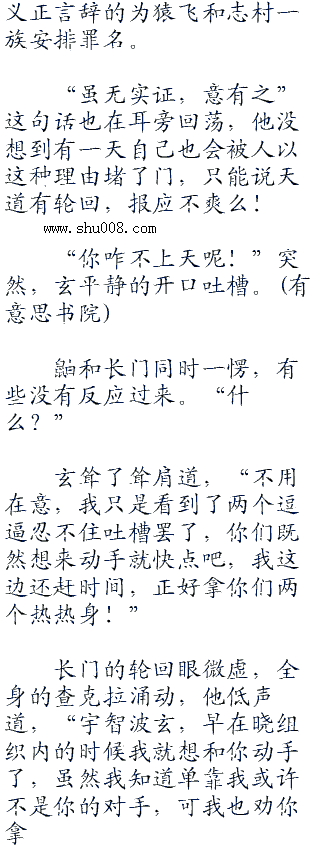 义正言辞的为猿飞和志村一
族安排罪名。
“虽无实证，意有之”
这句话也在耳旁回荡，他没
想到有一天自己也会被人以
这种理由堵了门，只能说天
道有轮回，报应不爽么！
www.shu008.com
“你咋不上天呢！”突
然，玄平静的开口吐槽。(有
意思书院)
鼬和长门同时一愣，有
些没有反应过来。“什
么？”
玄耸了耸肩道，“不用
在意，我只是看到了两个逗
逼忍不住吐槽罢了，你们既
然想来动手就快点吧，我这
边还赶时间，正好拿你们两
个热热身！”
长门的轮回眼微虚，全
身的查克拉涌动，他低声
道，“宇智波玄，早在晓组
织内的时候我就想和你动手
了，虽然我知道单靠我或许
不是你的对手，可我也劝你
拿